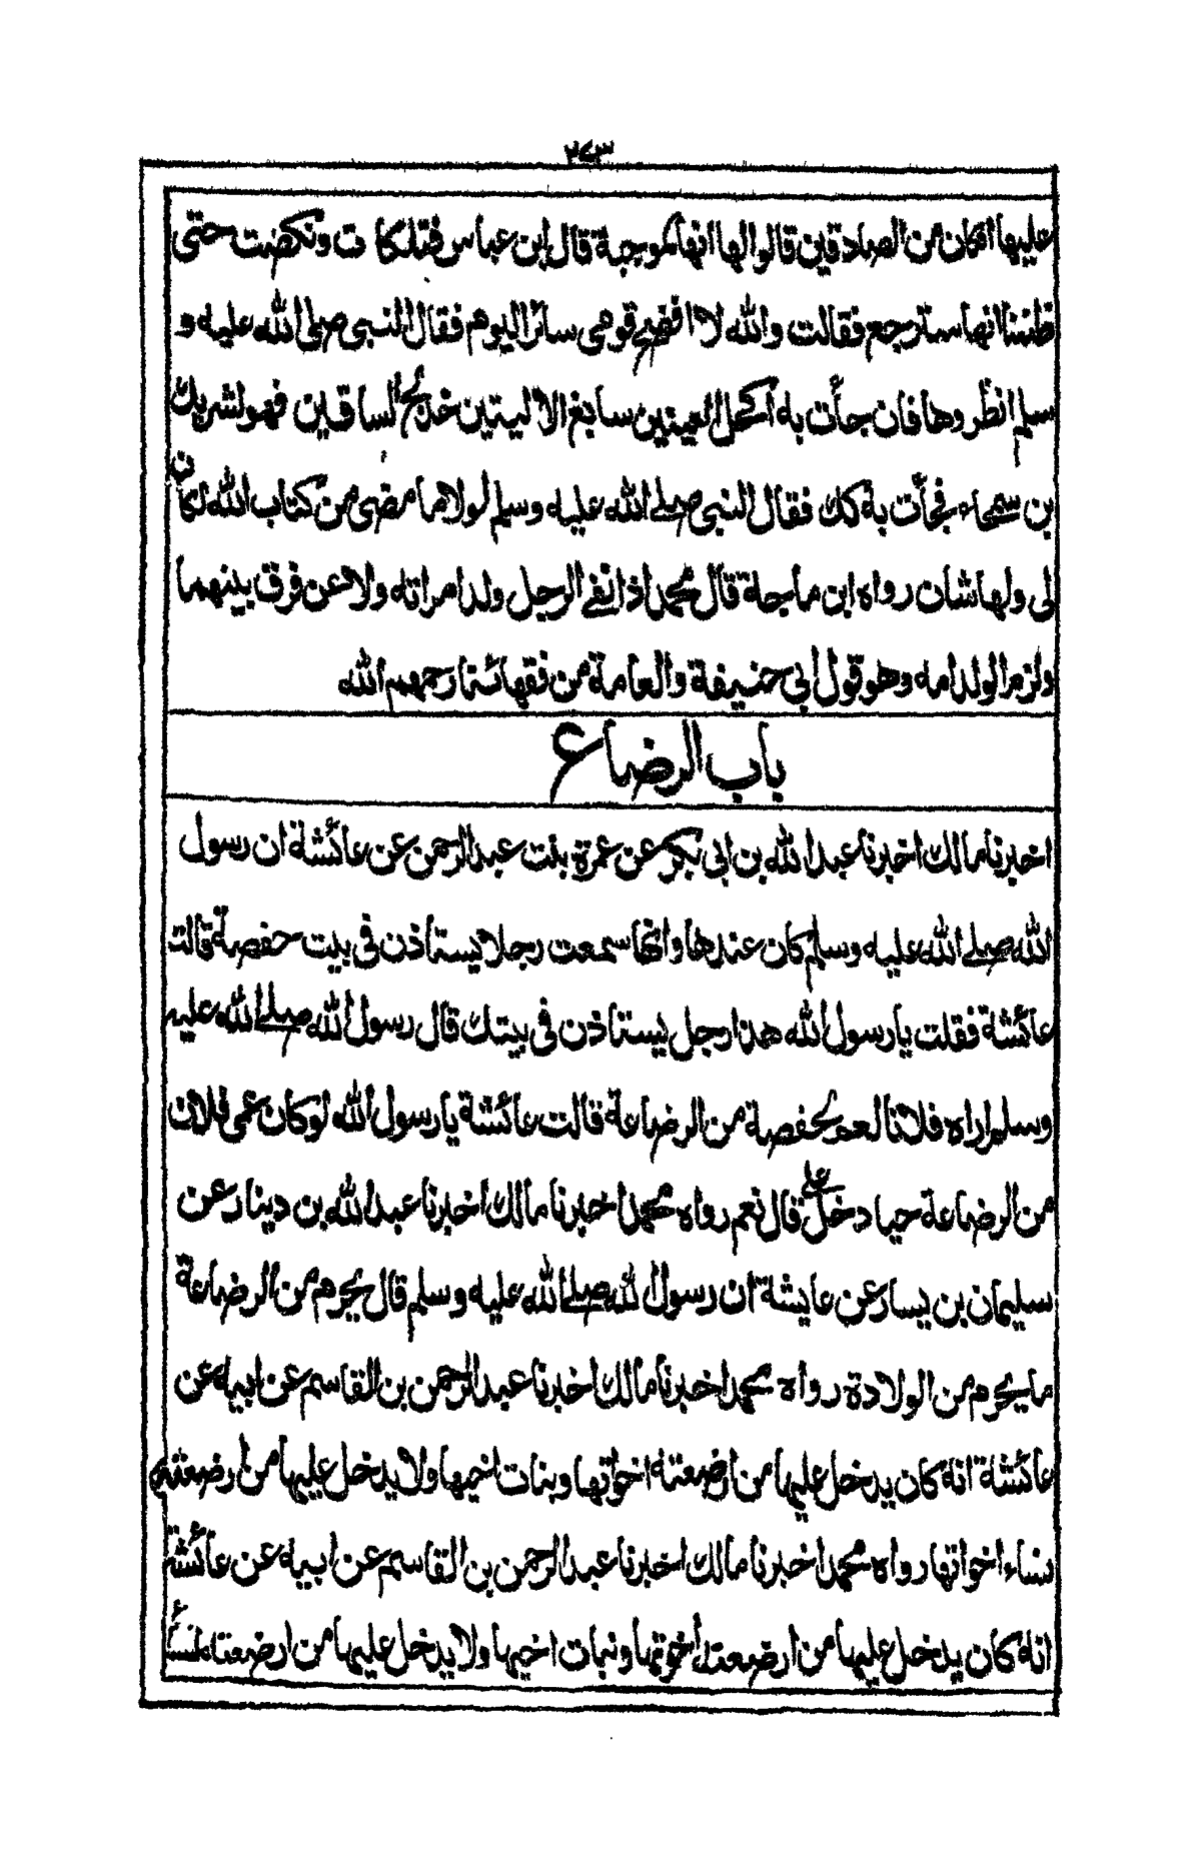 ٢٤٣
عليها انكان من الصادقين قالوا لها انها لموجبة قال ابن عباس فتلكأت ونكصت حتى
ظننا انها سترجع فقالت والله لا افضح قومى سائر اليوم فقال النبى صلى الله عليه و
سلم انظروها فان جأت به اكحل العينين سابغ الاليتين خدلج الساقين فهو لشريك
بن سمحاء فجأت به كك فقال النبى صلے الله عليه وسلم لولا ما مضى من كتاب الله لكان
لى ولها شان رواه ابن ماجة قال محمد اذا نفے الرجل ولد امراته ولاعن فرق بينهما
ولزم الولد امه وهو قول ابى حنيفة والعامة من فقهائنا رحمهم الله
باب الرضاع
اخبرنا مالك اخبرنا عبد الله بن ابى بكر عن عمرة بنت عبد الرحمن عن عائشة ان رسول
الله صلے الله عليه وسلم كان عندها وانها سمعت رجلا يستاذن فى بيت حفصة قالت
عائشة فقلت يا رسول الله هذا رجل يستاذن فى بيتك قال رسول الله صلے الله عليه
وسلم اراه فلانا لعم لحفصة من الرضاعة قالت عائشة يا رسول الله لو كان عمى فلان
من الرضاعة حيا دخل على قال نعم رواه محمد اخبرنا مالك اخبرنا عبد الله بن دينار عن
سليمان بن يسار عن عايشة ان رسول الله صلے الله عليه وسلم قال يحرم من الرضاعة
ما يحرم من الولادة رواه محمد اخبرنا مالك اخبرنا عبد الرحمن بن القاسم عن ابيه عن
عائشة انه كان يدخل عليها من ارضعته اخواتها وبنات اخيها ولا يدخل عليها من ارضعته
نساء اخواتها رواه محمد اخبرنا مالك اخبرنا عبد الرحمن بن القاسم عن ابيه عن عائشة
انه كان يدخل عليها من ارضعته اخوتها وبنات اخيها ولا يدخل عليها من ارضعته نسأ